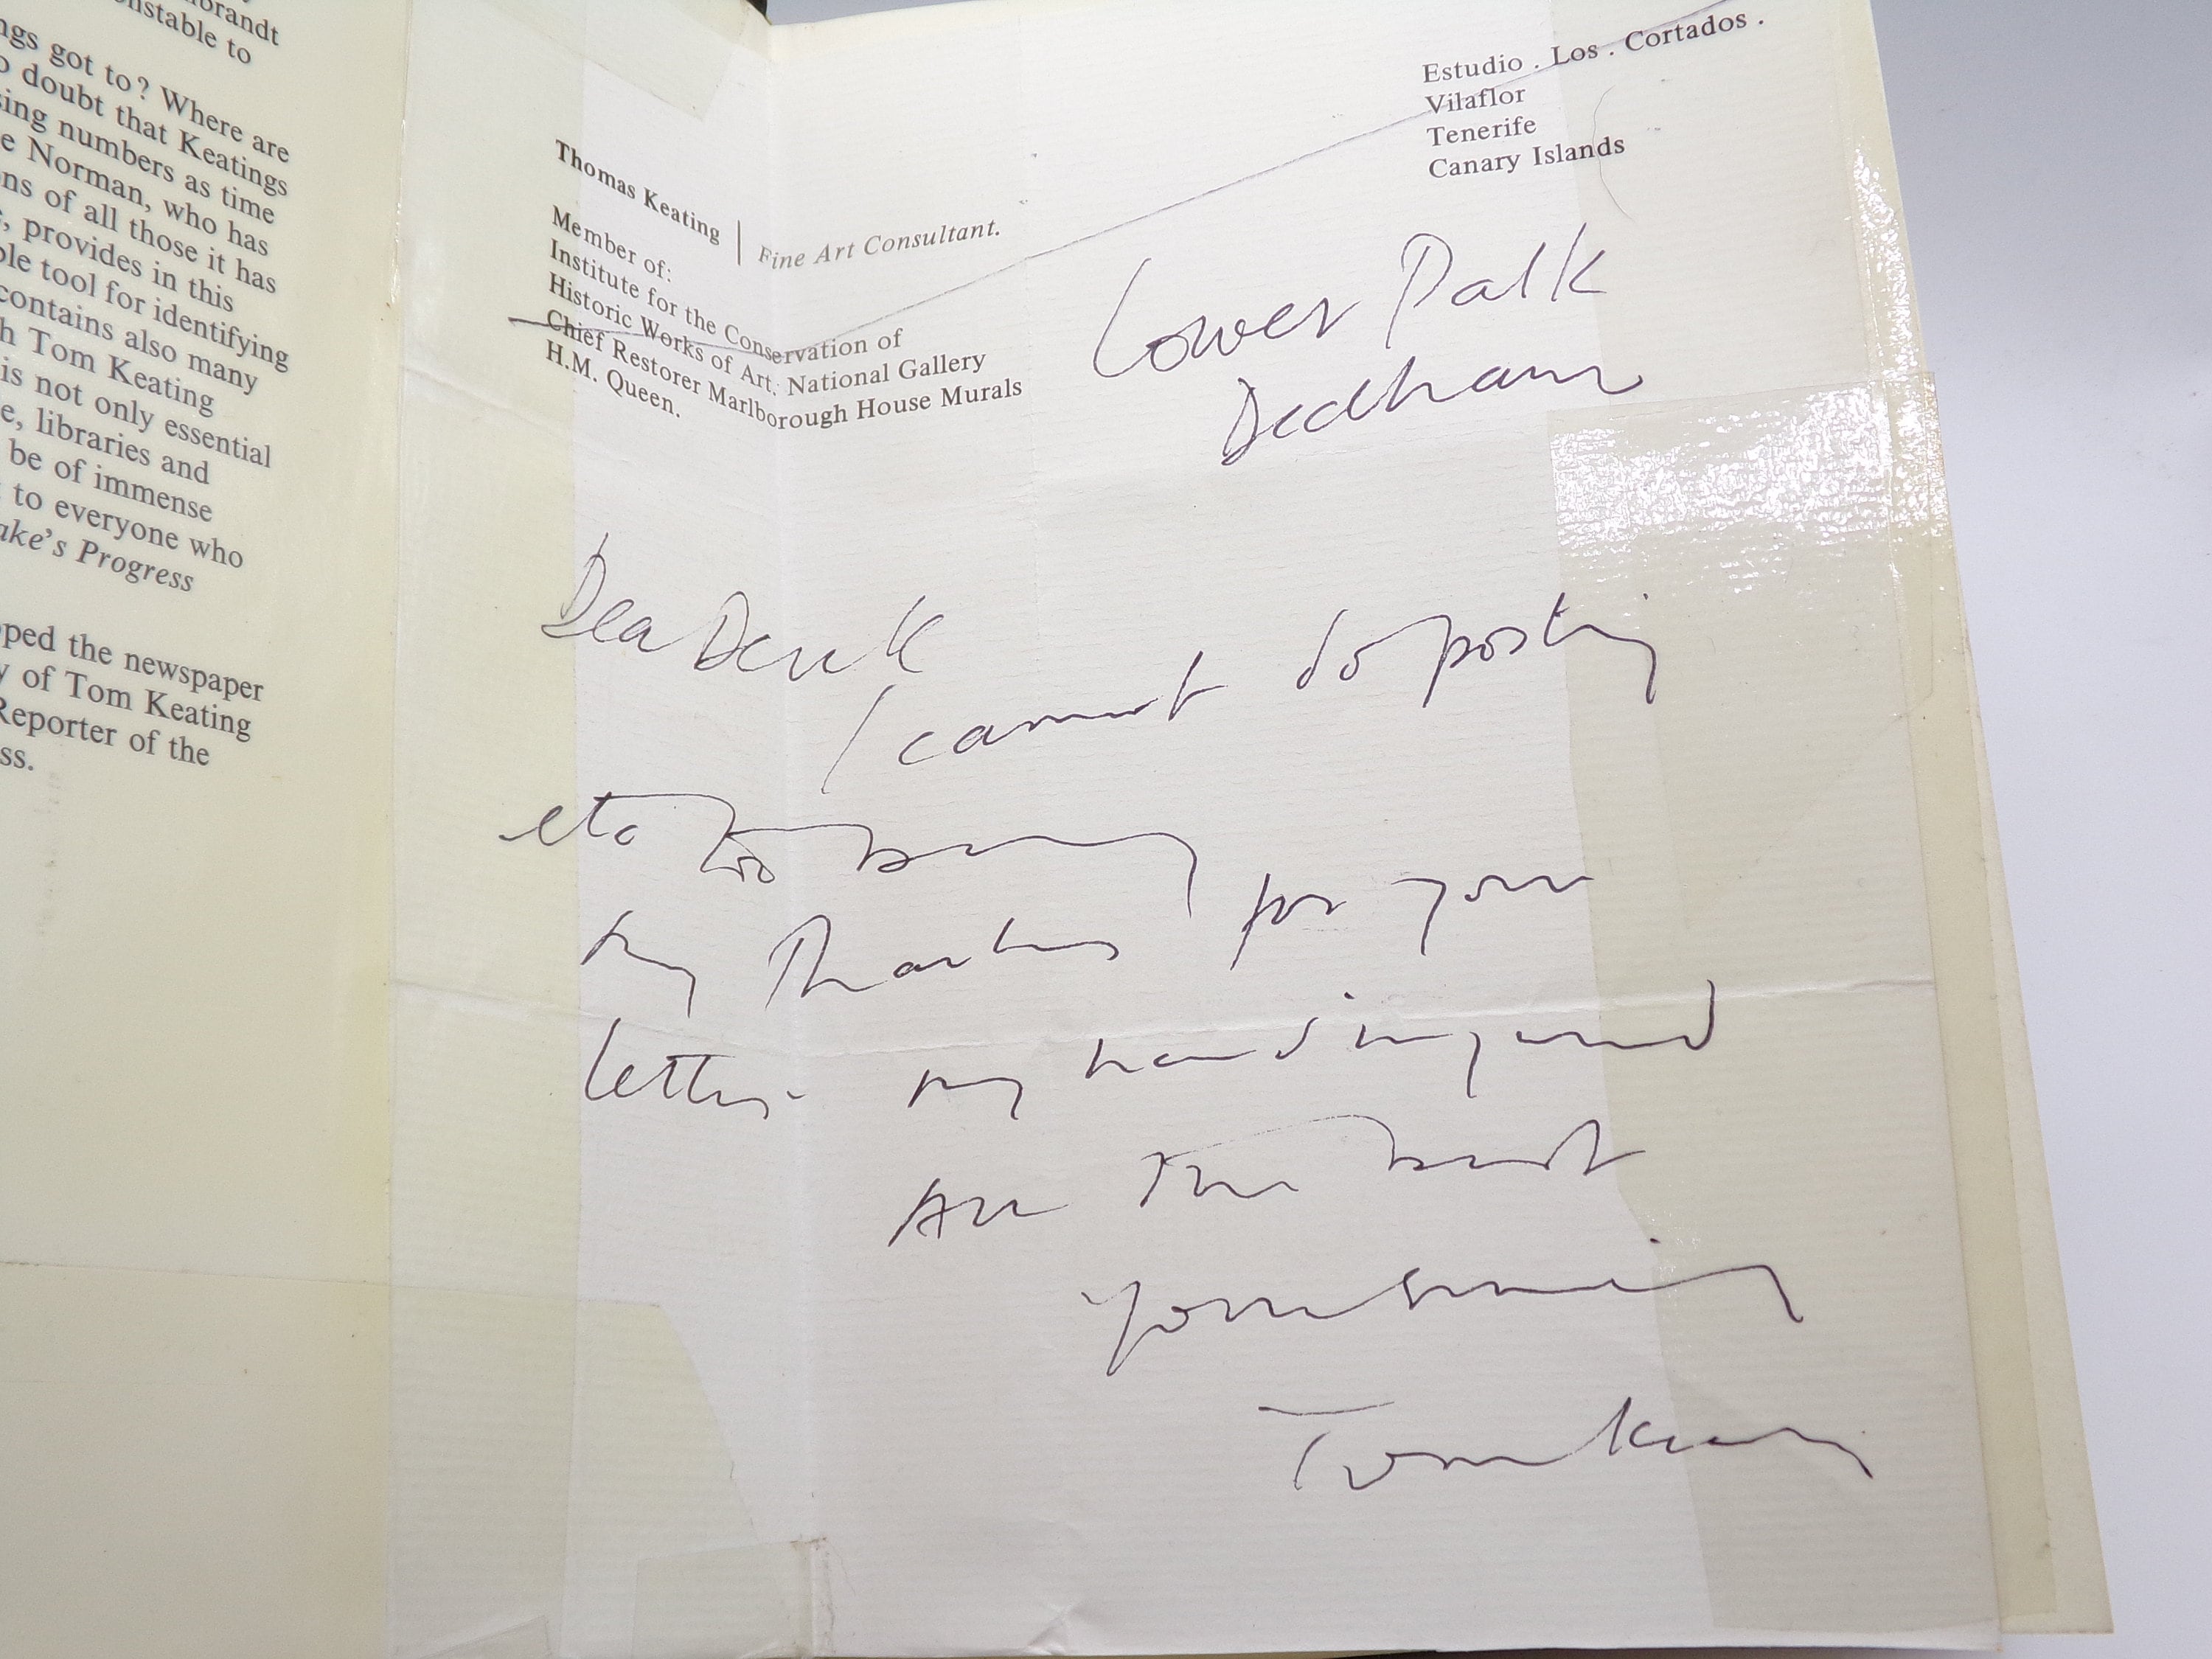 brandt
nstable to
ngs got to? Where are
o doubt that Keatings
sing numbers as time
e Norman, who has
ons of all those it has
e, provides in this
ble tool for identifying
contains also many
h Tom Keating
is not only essential
e, libraries and
be of immense
to everyone who
ake's Progress
pped the newspaper
y of Tom Keating
Reporter of the
ss.
Estudio . Los . Cortados .
Vilaflor
Tenerife
Canary Islands
Thomas Keating | Fine Art Consultant.
Member of:
Institute for the Conservation of
Historic Works of Art. National Gallery
Chief Restorer Marlborough House Murals
H.M. Queen.
Lower Park
Dedham
Dear Derek
I cannot do posting
etc too busy
my thanks for your
letter. my hand injured
All the best
Yours sincerely
Tom Keating